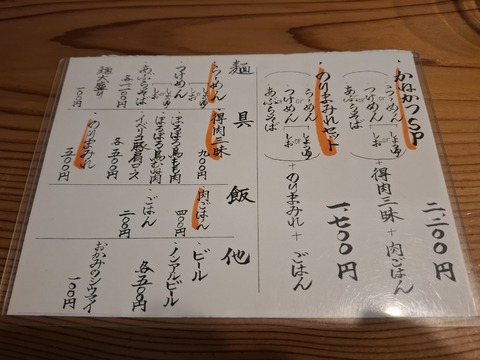 ・かねかつSP
らーめん[しょうゆ しお]
つけめん
あぶらそば
+得肉三昧+肉ごはん
二、二〇〇円
・のりまみれセット
らーめん[しょうゆ しお]
つけめん
あぶらそば
+のりまみれ+ごはん
一、七〇〇円
麺
・らーめん[しょうゆ しお]
・つけめん
・あぶらそば
各一、一〇〇円
麺大盛り
一〇〇円
具
・得肉三昧
九〇〇円
・ほろほろ鳥もも肉
・ほろほろ鳥むね肉
・イベリコ豚肩ロース
各五〇〇円
・のりまみれ
三〇〇円
飯
・肉ごはん
四〇〇円
・ごはん
二〇〇円
他
・ビール
・ノンアルビール
各五〇〇円
おかみのシウマイ
一〇〇円